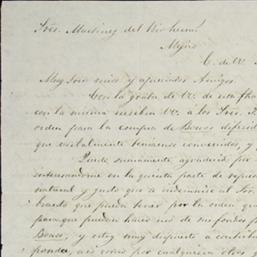 Sres. Martinez del Rio herms
Mejico
C. de V.
Muy Sres mios y apreciados Amigos.
Con la grata de VV. de esta fha
con la misma reciben VV. a los Sres.
orden para la compra de Bonos diferid
que verbalmente teniamos convenido, y
Quedo sumamente agradecido por
interesandome en la quinta parte de
natural y justo que a indemnice al Sor.
que pueda tener por la orden que
para que puedan hacer uso de mis fondos
Bonos, y estoy muy dispuesto a contribu
ponda, asi como por cualquiera otros